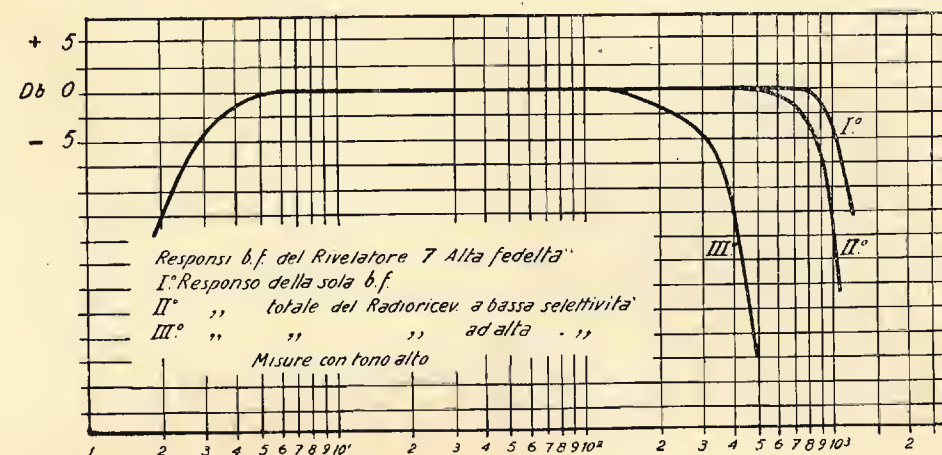 + 5
Db 0
- 5
I.º
II.º
III.º
Responsi b.f. del Rivelatore 7 Alta fedeltà"
I.º Responso della sola b.f.
II.º ,, totale del Radioricev. a bassa selettività
III.º ,, ,, ,, ad alta . ,,
Misure con tono alto
1 2 3 4 5 6 7 8 9 10¹ 2 3 4 5 6 7 8 9 10² 2 3 4 5 6 7 8 9 10³ 2